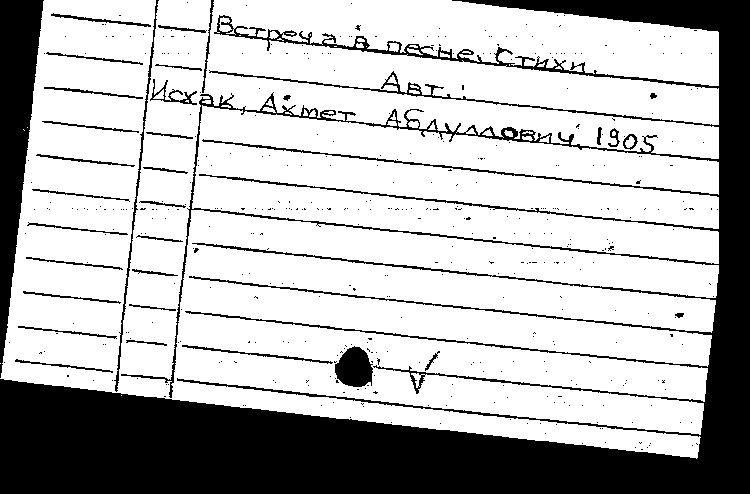 Встреча в песне. Стихи.
Авт.:
Исхак, Ахмет Абдуллович, 1905